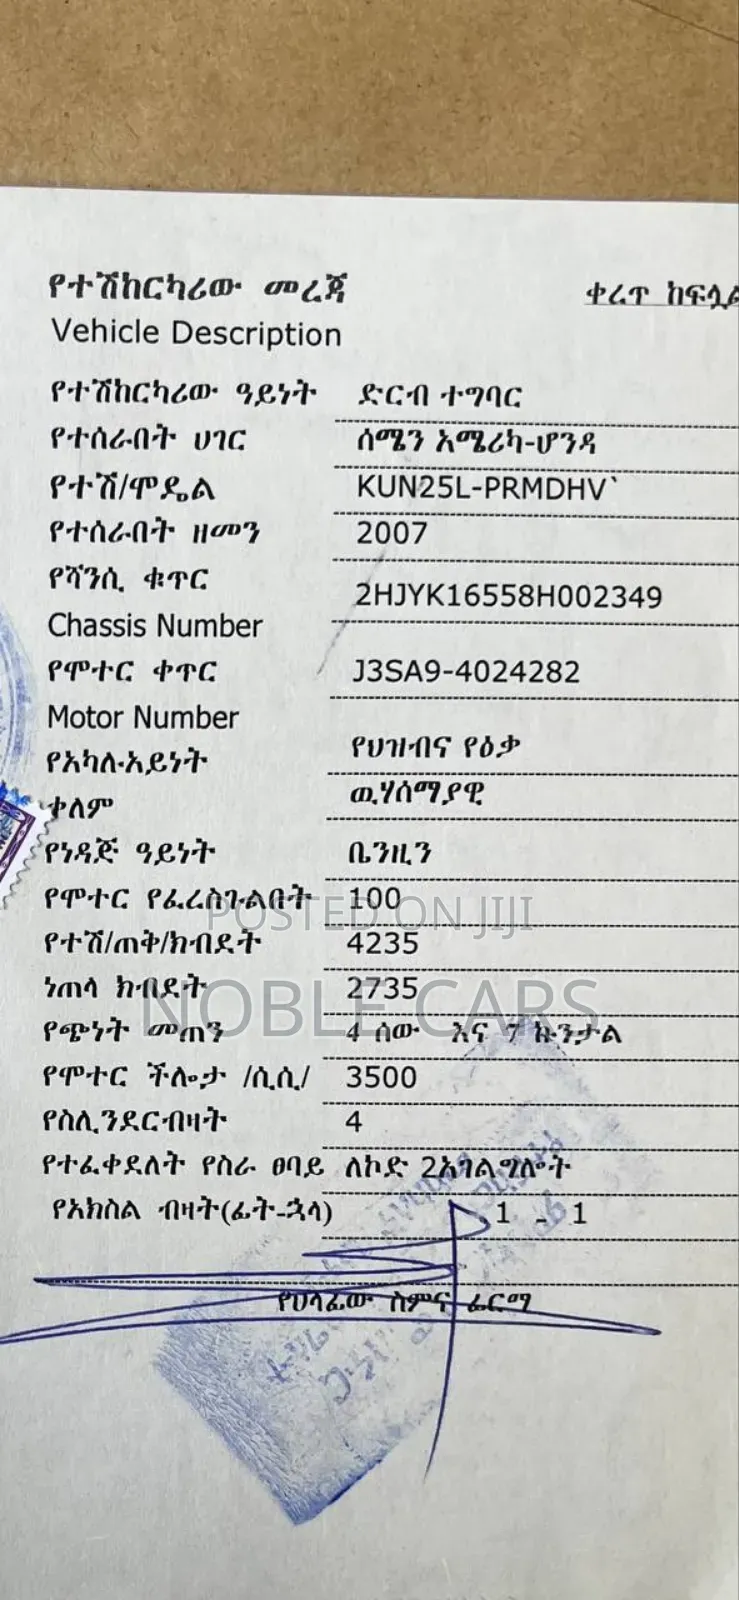 የተሽከርካሪው መረጃ
ቀረጥ ከፍሏል
Vehicle Description
የተሽከርካሪው ዓይነት ድርብ ተግባር
የተሰራበት ሀገር ሰሜን አሜሪካ-ሆንዳ
የተሽ/ሞዴል KUN25L-PRMDHV`
የተሰራበት ዘመን 2007
የሻንሲ ቁጥር 2HJYK16558H002349
Chassis Number
የሞተር ቀጥር J3SA9-4024282
Motor Number
የአካሉ·አይነት የህዝብና የዕቃ
ቀለም ዉሃሰማያዊ
የነዳጅ ዓይነት ቤንዚን
የሞተር የፈረስጉልበት 100
POSTED ON JIJI
የተሽ/ጠቅ/ክብደት 4235
ነጠላ ክብደት 2735
NOBLE CARS
የጭነት መጠን 4 ሰው እና 7 ኩንታል
የሞተር ችሎታ /ሲሲ/ 3500
የስሊንደርብዛት 4
የተፈቀደለት የስራ ፀባይ ለኮድ 2አገልግሎት
የአክስል ብዛት(ፊት-ኋላ) 1 - 1
የሀላፊው ስምና ፊርማ